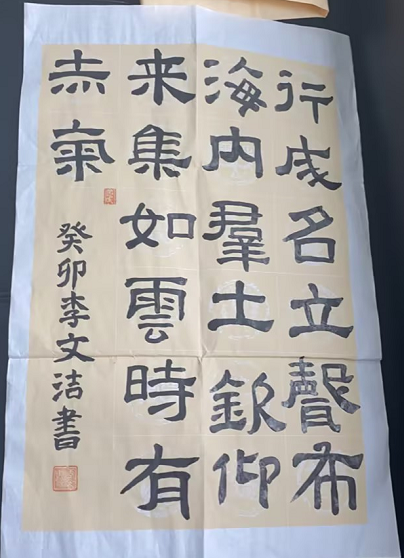 行成名立聲布
海内羣土欽仰
来集如雲時有
赤氣
癸卯李文洁書